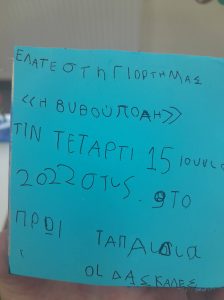 ΕΛΑΤΕ ΣΤΗ ΓΙΟΡΤΗ ΜΑΣ
«Η ΒΥΘΟΥΠΟΛΗ»
ΤΙΝ ΤΕΤΑΡΤΙ 15 ΙΟΥΝΙΟ
2022 ΣΤΙΣ 9 ΤΟ
ΠΡΟΙ ΤΑ ΠΑΙΔΙΑ
ΟΙ ΔΑΣΚΑΛΕΣ